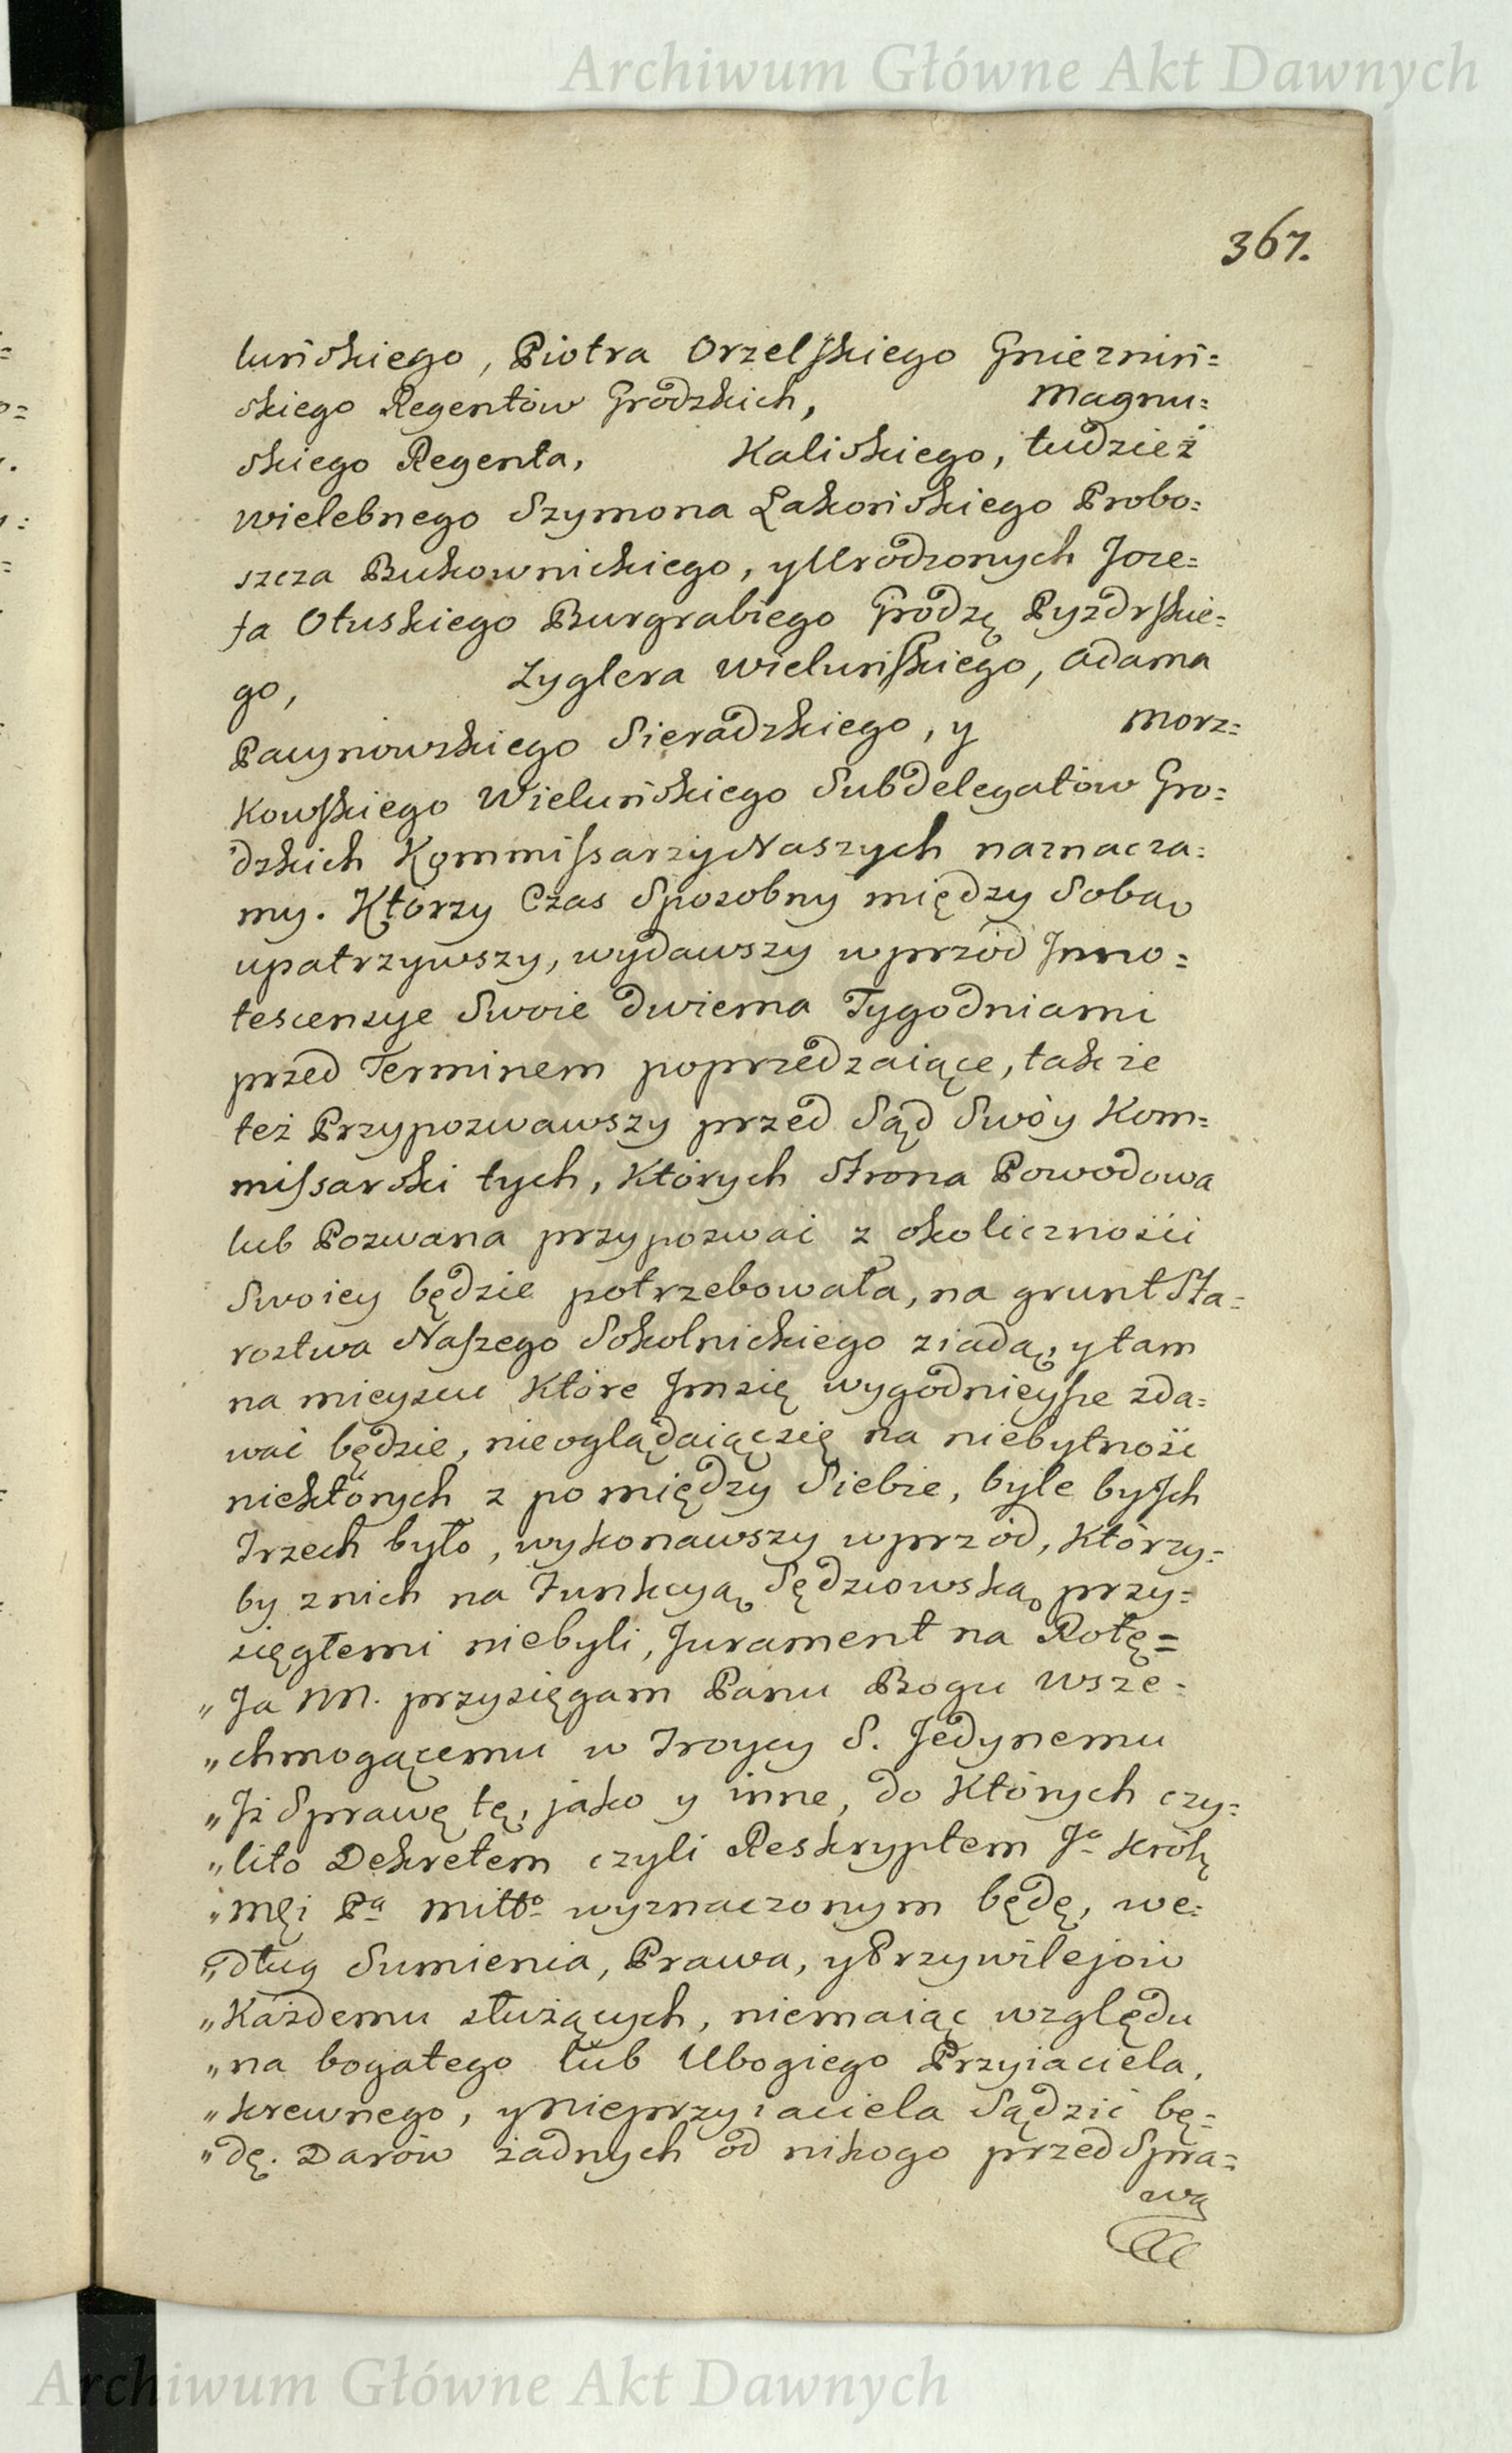 Archiwum Główne Akt Dawnych
367.
luńskiego, Piotra Orzelskiego Gniezniń=
skiego Regentów Grodzkich, Magnu=
skiego Regenta, Kaliskiego, tudzież
wielebnego Szymona Łakońskiego Probo=
szcza Bukownickiego, y Urodzonych Joze=
fa Otuskiego Burgrabiego Grodzę Pyzdrskie=
go, Zyglera Wieluńskiego, Adama
Pacynowskiego Sieradzkiego, y Morz=
kowskiego Wieluńskiego Subdelegatów Gro=
dzkich Kommissarzy Naszych naznacza=
my. Którzy Czas Sposobny między Sobą
upatrzywszy, wydawszy wprzód Inno=
tescensye Swoie dwiema Tygodniami
przed Terminem poprzedzaiące, takze
też Przypozwawszy przed Sąd Swóy Kom=
missarski tych, których Strona Powodowa
lub Pozwana przypozwać z okoliczności
Swoiey będzie potrzebowała, na grunt Sta=
rostwa Naszego Sokolnickiego ziadą, y tam
na mieyscu które Jm się wygodnieysze zda=
wać będzie, nieoglądaiąc się na niebytność
niektórych z pomiędzy Siebie, byle by Jch
Trzech było, wykonawszy wprzód, którzy=
by z nich na Funkcyą Sędziowską przy=
sięgłemi niebyli, Jurament na Rotę=
„Ja NN. przysięgam Panu Bogu Wsze=
„chmogącemu w Troycy S. Jedynemu
„Jż Sprawę tę, jako y inne, do których czy=
„lito Dekretem czyli Reskryptem Jᵃ Królę
„Mci Pᵃ Miłłº wyznaczonym będę, we=
„dług Sumienia, Prawa, y Przywilejów
„Każdemu służących, niemaiąc względu
„na bogatego lub Ubogiego Przyiaciela,
„krewnego, y Nieprzyiaciela Sądzić bę=
„dę. Darów żadnych od nikogo przed Spra=
wą
Archiwum Główne Akt Dawnych